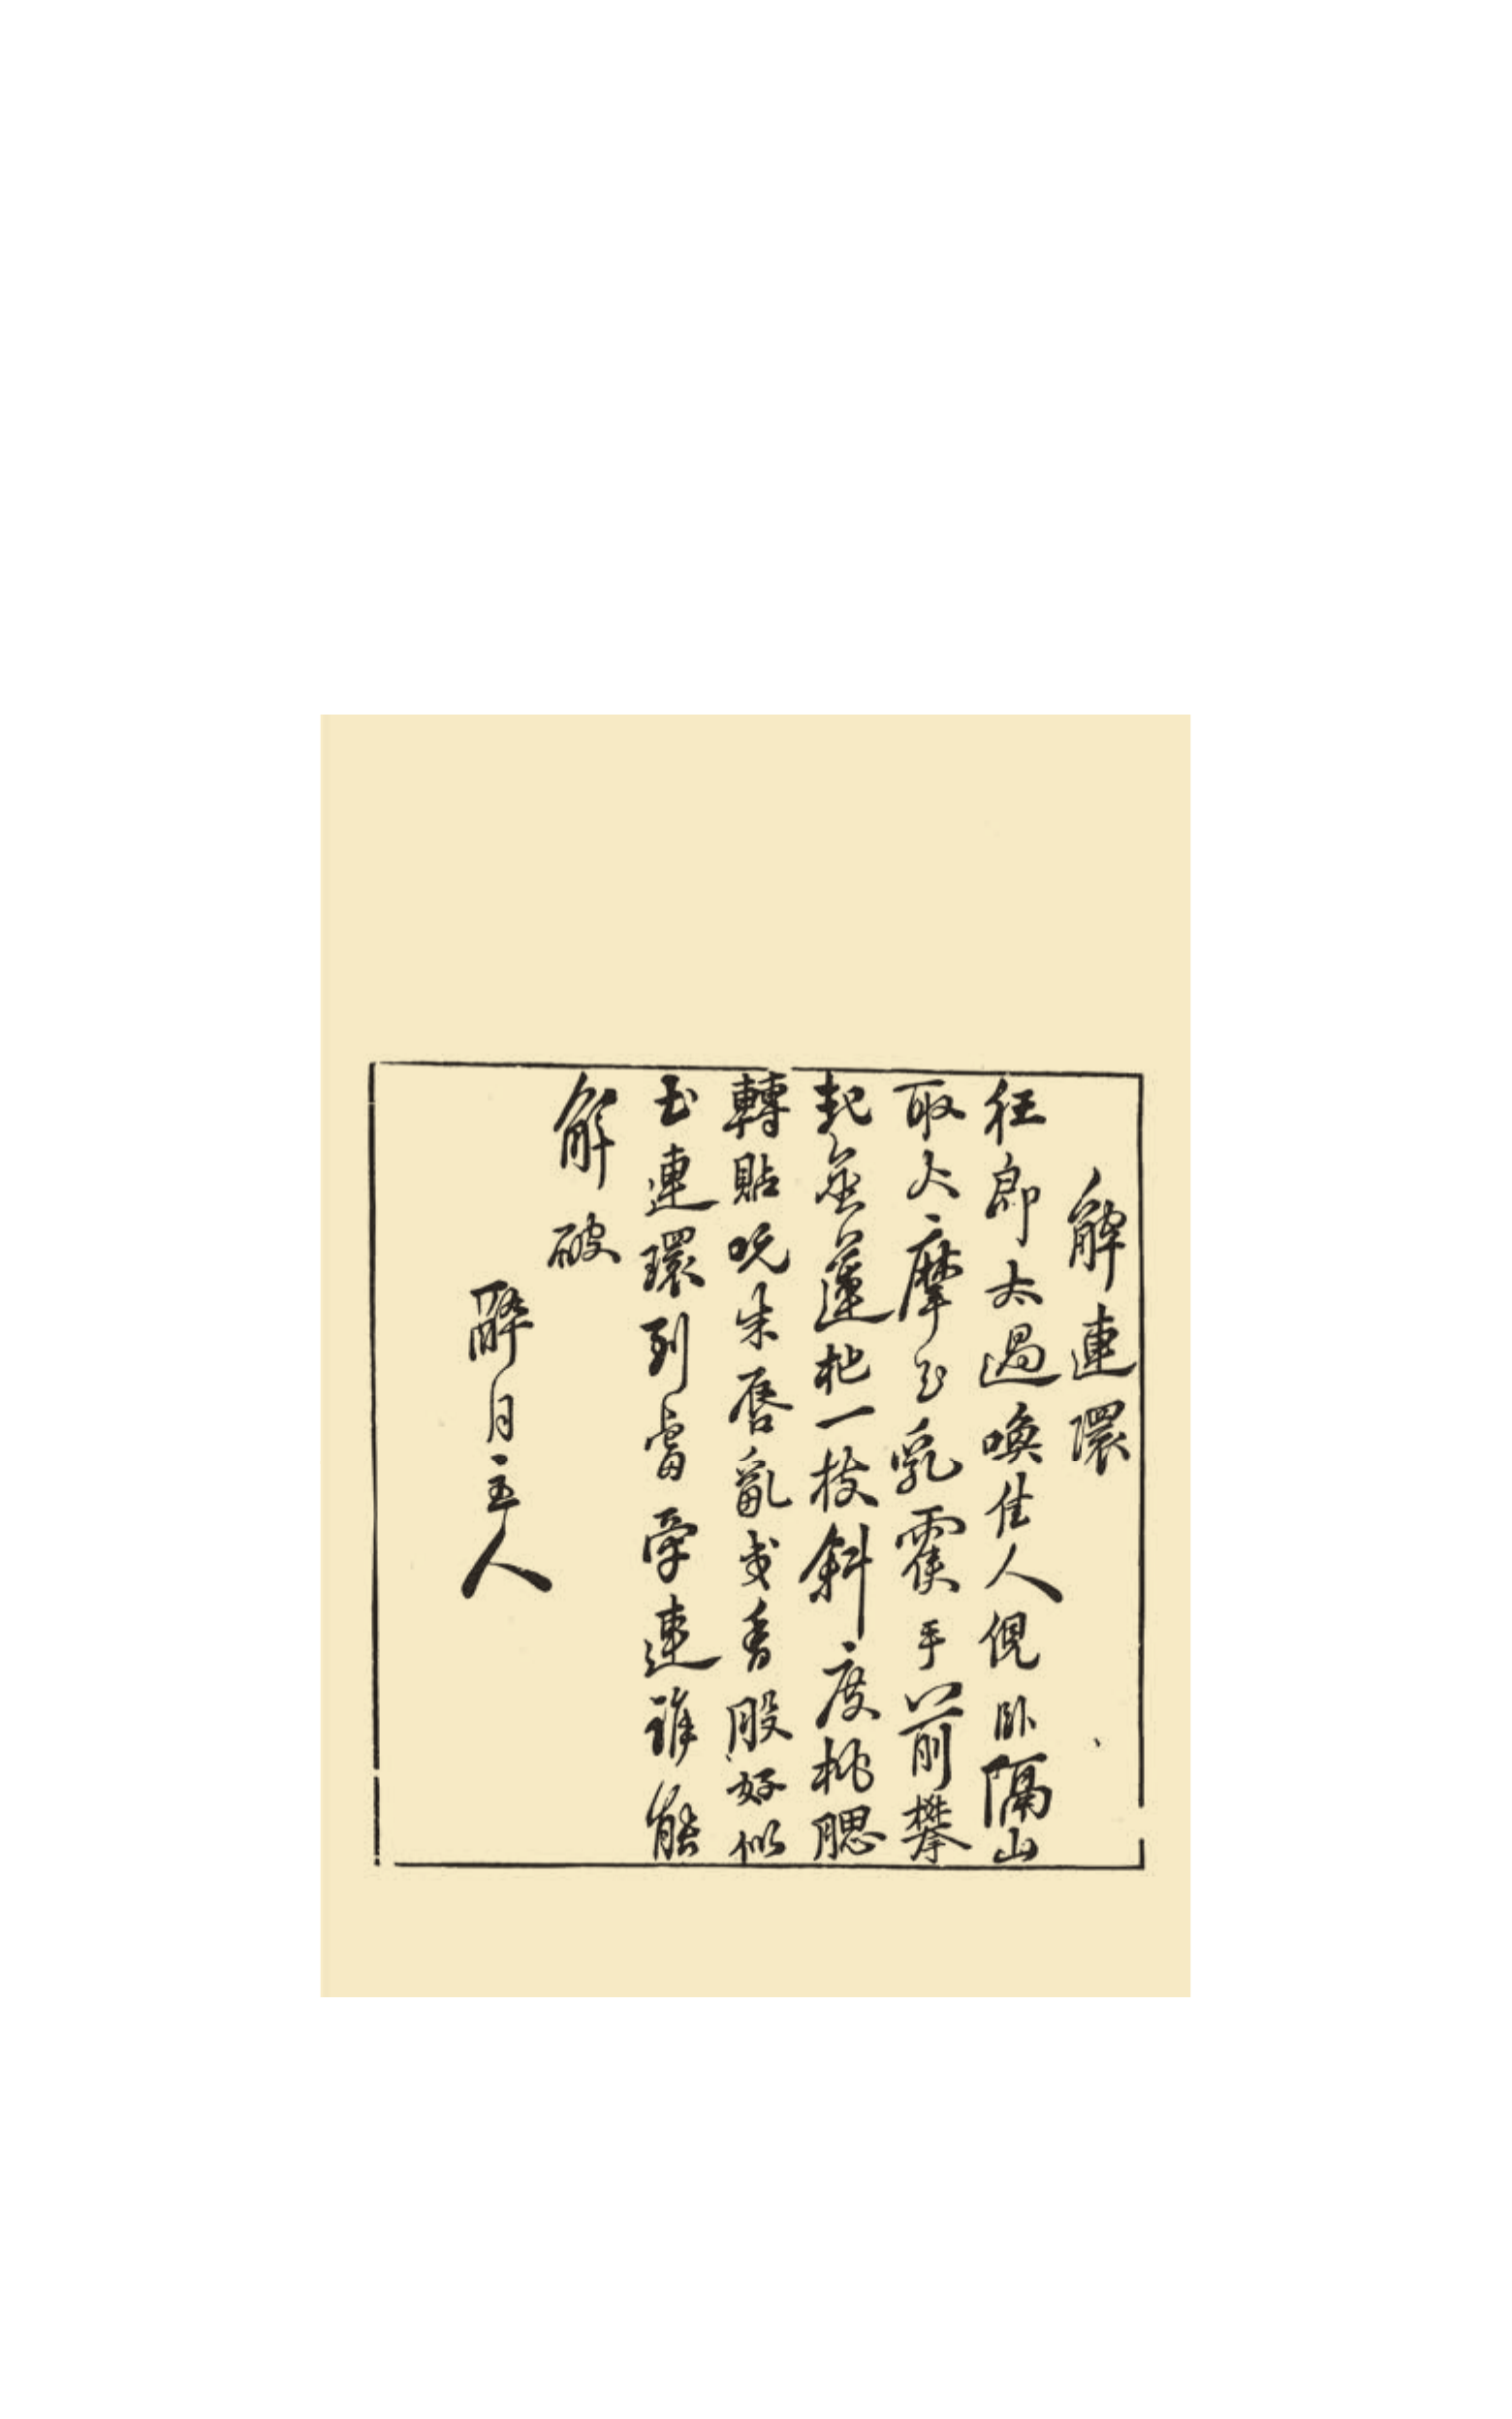 解連環
狂郎太過喚佳人俔臥隔山
取火摩玉乳雙手前攀
起金蓮把一枝斜度桃腮
轉貼吮朱唇亂戛香股好似
玉連環到處牽連誰能
解破
醉月主人